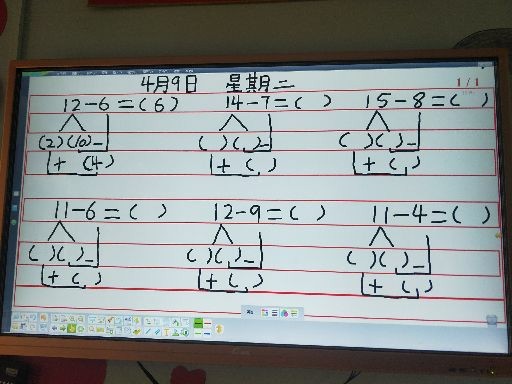 4月9日 星期二
1/1
12-6=(6) 14-7=( ) 15-8=( )
(2)(10)- ( )( )- ( )( )-
+ (4) + ( ) + ( )
11-6=( ) 12-9=( ) 11-4=( )
( )( )- ( )( )- ( )( )-
+ ( ) + ( ) + ( )